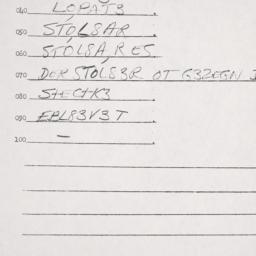 040 LOPAT3.
050 STOLSAR.
060 STOLSA, R ES.
070 DER STOLS3R OT G3ZEGN
080 SHECHK3.
090 EPL83V3T.
100 —.